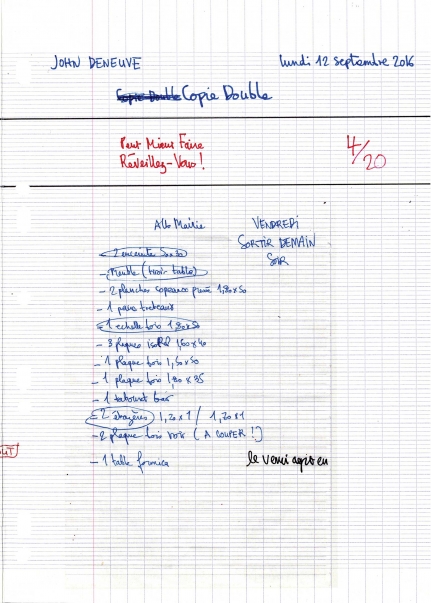 JOHN DENEUVE
Lundi 12 Septembre 2016
Copie Double Copie Double
Peut Mieux Faire
Réveillez-Vous !
4/20
Allo Mairie
VENDREDI
SORTIR DEMAIN
SOIR
- 2 enceintes 50x30
- Meuble (tiroir table)
- 2 planches copeaux pressé 1,80x50
- 1 paire treteaux
- 1 echelle bois 1,80x50
- 3 plaques isorel 1,60x40
- 1 plaque bois 1,50x50
- 1 plaque bois 1,80x35
- 1 tabouret bar
- 2 étagères 1,20x1 / 1,70x1
- 2 plaque bois noir (A COUPER !)
- 1 table formica
le venin agis en